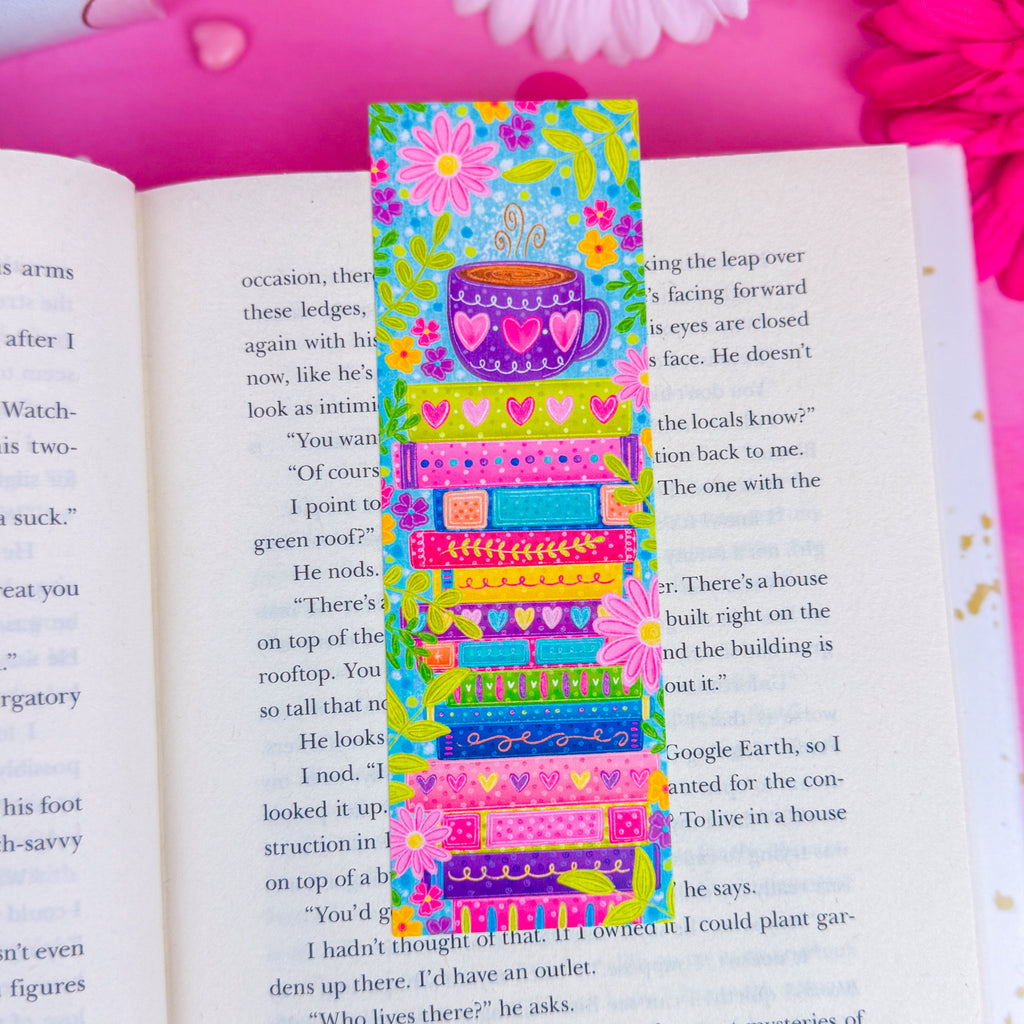 is arms
after I
Watch-
is two-
a suck.”
reat you
.”
rgatory
his foot
h-savvy
sn’t even
figures
occasion, there king the leap over
these ledges, ’s facing forward
again with his is eyes are closed
now, like he’s s face. He doesn’t
look as intimi
“You wan the locals know?”
“Of cours tion back to me.
I point to The one with the
green roof?”
He nods.
“There’s a er. There’s a house
on top of the built right on the
rooftop. You nd the building is
so tall that no out it.”
He looks Google Earth, so I
I nod. “I anted for the con-
looked it up. ? To live in a house
struction in
on top of a b ’ he says.
“You’d g
I hadn’t thought of that. If I owned it I could plant gar-
dens up there. I’d have an outlet.
“Who lives there?” he asks.
mysteries of